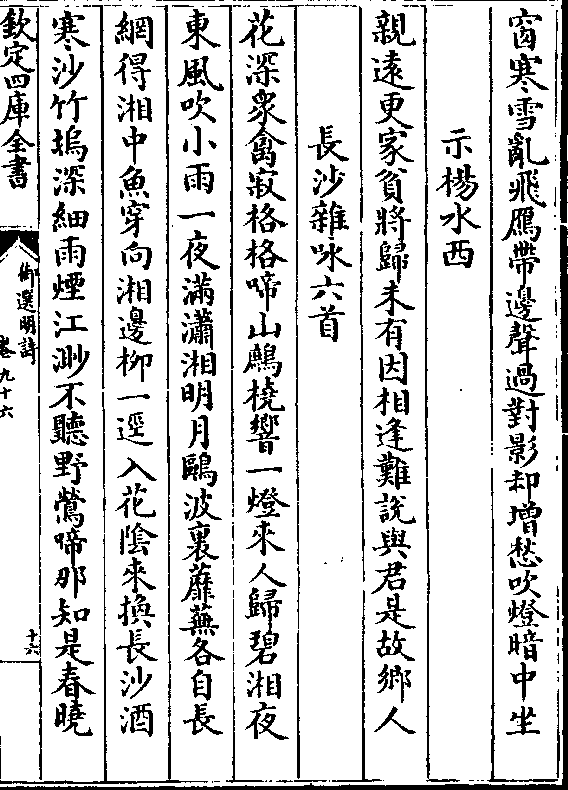 窗寒雪亂飛鴈帶邊聲過對影却增愁吹燈暗中坐
示楊水西
親遠更家貧將歸未有因相逢難說與君是故鄉人
長沙雜咏六首
花深衆禽寂格格啼山鷓橈響一燈來人歸碧湘夜
東風吹小雨一夜滿瀟湘明月鷗波裏蘼蕪各自長
網得湘中魚穿向湘邊柳一逕入花陰來換長沙酒
寒沙竹塢深細雨煙江渺不聽野鶯啼那知是春曉
欽定四庫全書
御選明詩
卷九十六
十六